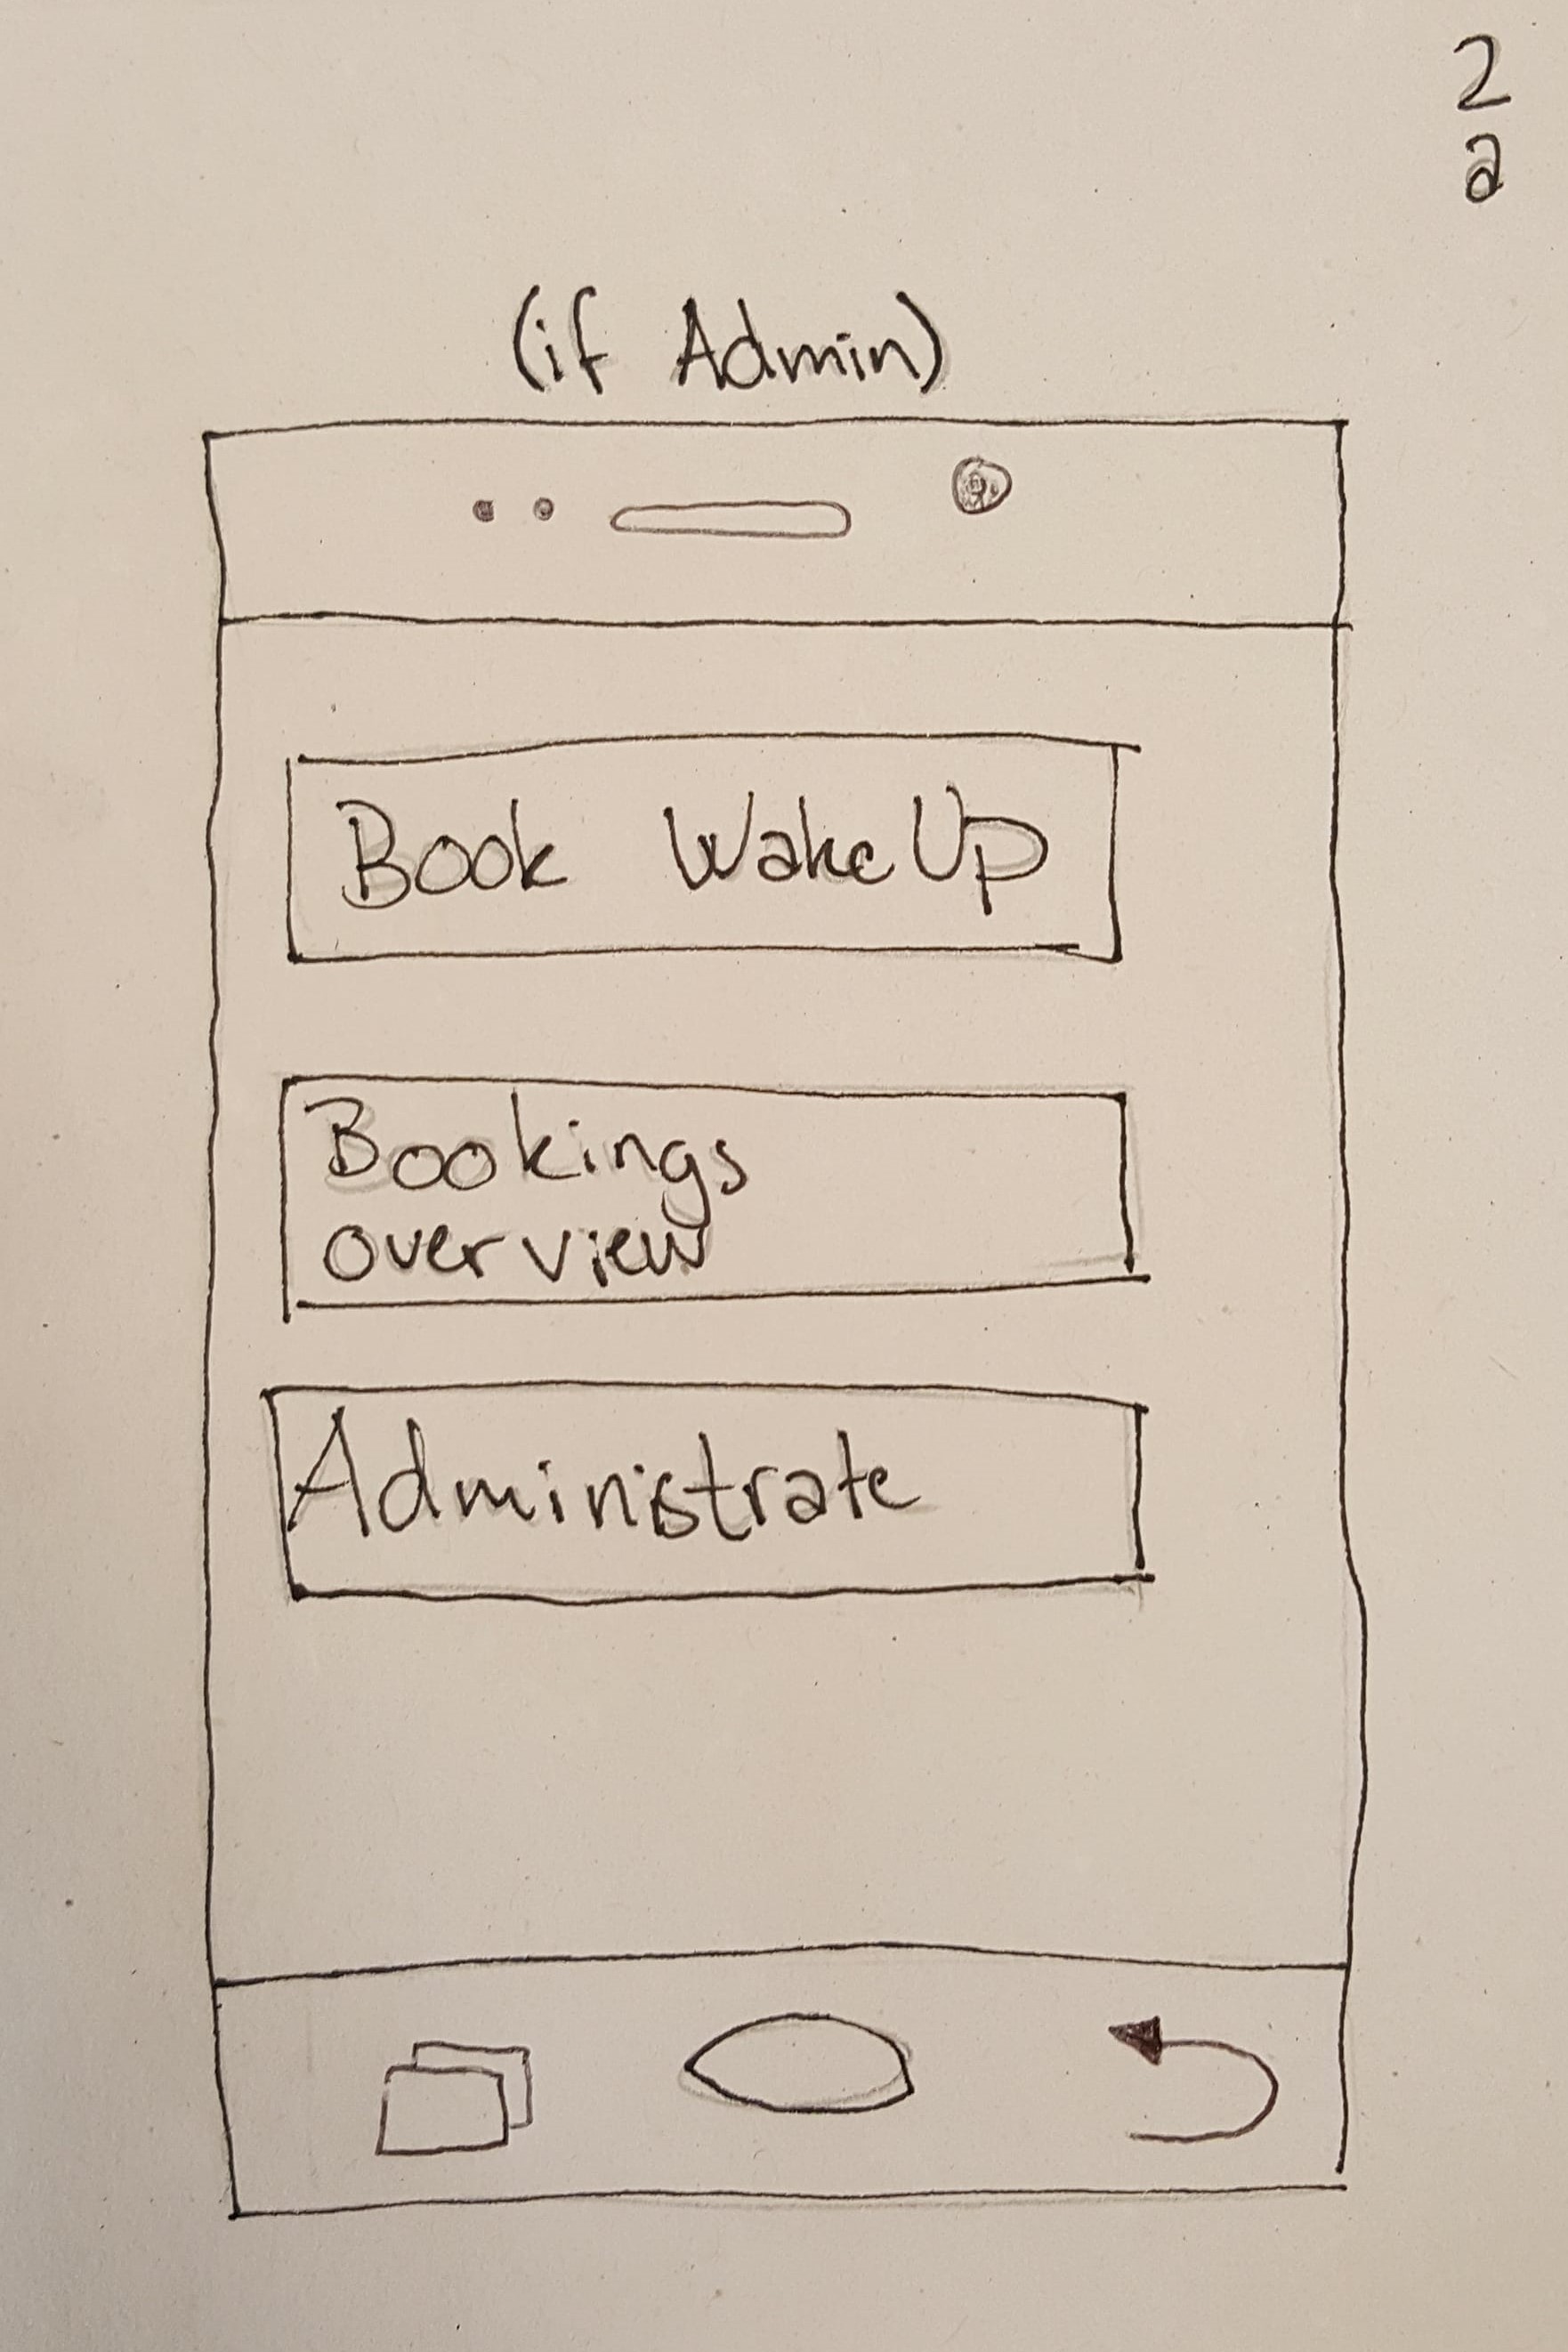 2
a
(if Admin)
Book WakeUp
Bookings
overview
Administrate